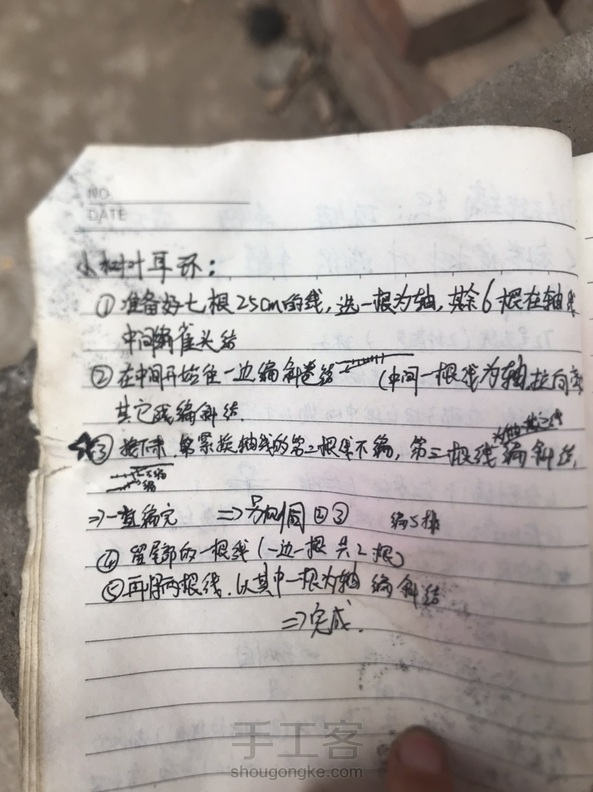 NO
DATE
小树叶耳环：
①准备好七根25cm的线，选一根为轴，其余6根在轴线
中间编雀头结
②在中间开始往一边编斜卷结 (中间一根线为轴，拉向
其它线编斜结.
③接下来，紧挨轴线的第二根线不编，第三根线编斜结，
为轴 其它线
不编
编
⇒一直编完 ⇒另一侧同②③ 编5排
④留尾部的一根线(一边一根 共2根)
⑤再用两根线.以其中一根为轴 编斜结
⇒完成.
手工客
shougongke.com